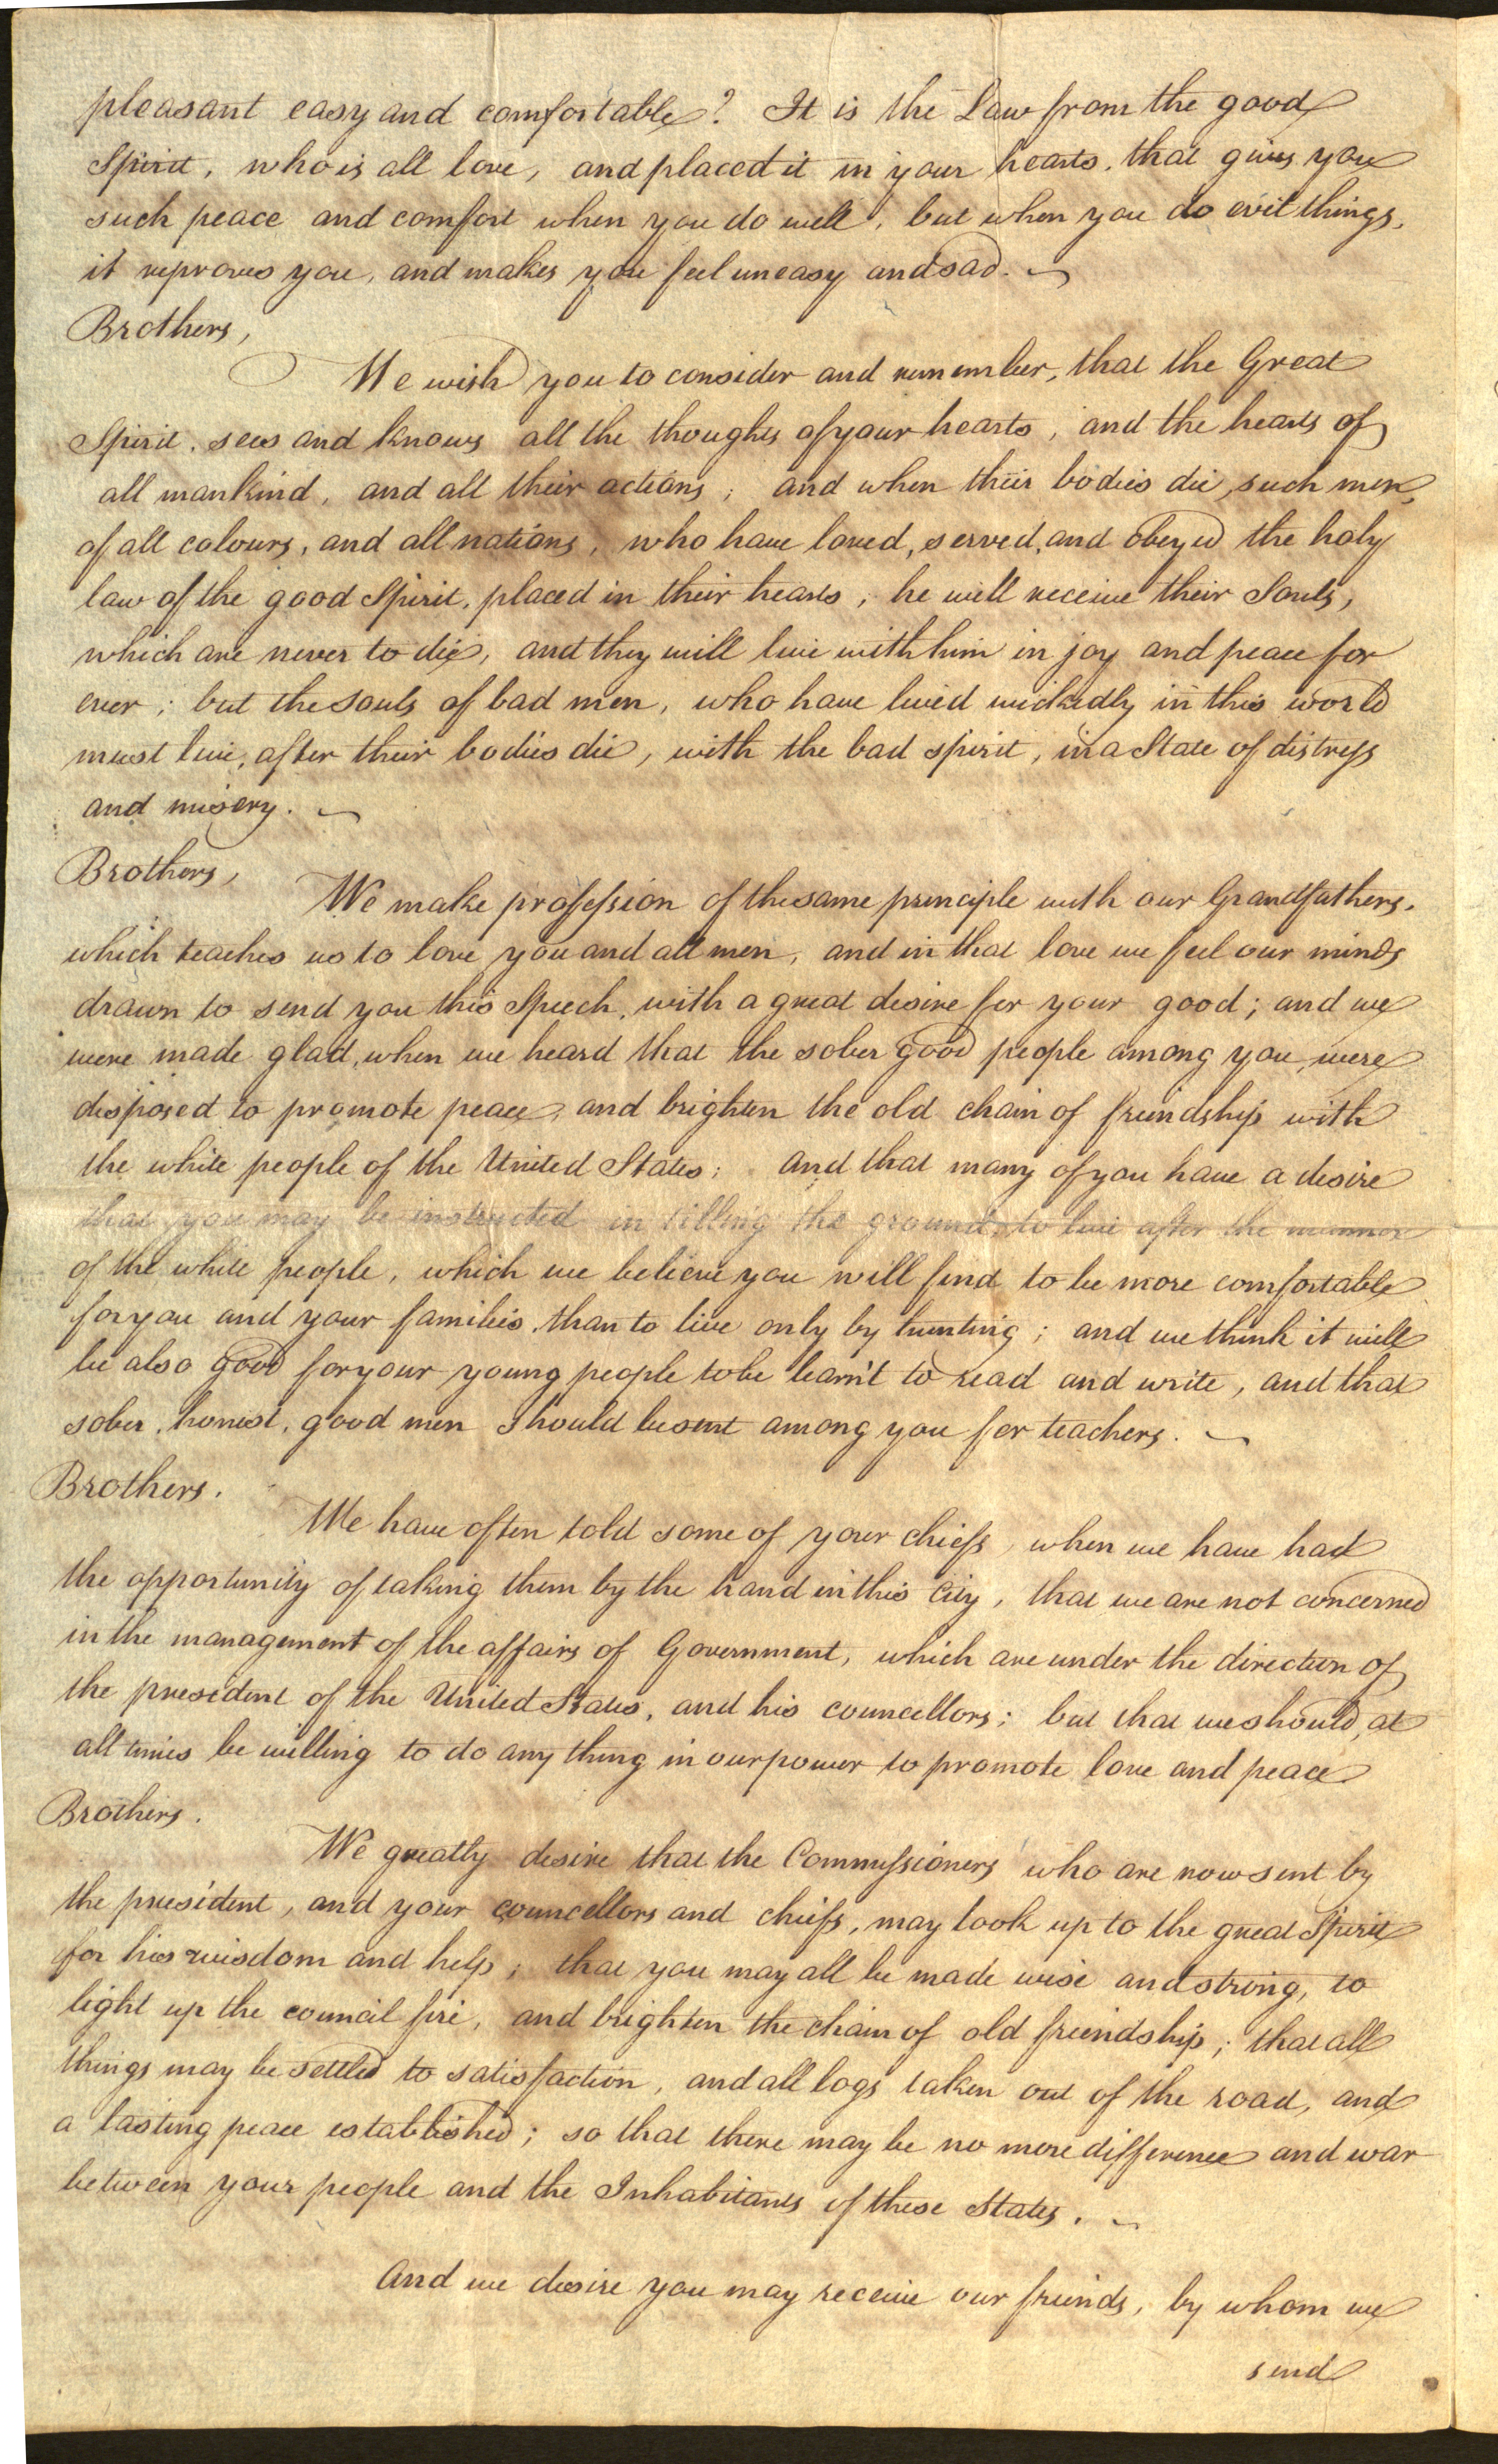 pleasant easy and comfortable? It is the Law from the good
Spirit, who is all love, and placed it in your hearts, that gives you
such peace and comfort when you do well, but when you do evil things,
it reproves you, and makes you feel uneasy and sad.
Brothers,
We wish you to consider and remember, that the Great
Spirit, sees and knows all the thoughts of your hearts, and the hearts of
all mankind, and all their actions; and when their bodies die, such men,
of all colours, and all nations, who have loved, served, and obeyed the holy
law of the good Spirit, placed in their hearts, he will receive their Souls,
which are never to die, and they will live with him in joy and peace for
ever; but the souls of bad men, who have lived wickedly in this world
must live, after their bodies die, with the bad spirit, in a State of distress
and misery.
Brothers,
We make profession of the same principle with our Grandfathers,
which teaches us to love you and all men, and in that love we feel our minds
drawn to send you this Speech, with a great desire for your good; and we
were made glad, when we heard that the sober good people among you, were
disposed to promote peace, and brighten the old chain of friendship with
the white people of the United States; and that many of you have a desire
that you may be instructed in tilling the ground, to live after the manner
of the white people, which we believe you will find to be more comfortable
for you and your families, than to live only by hunting; and we think it will
be also good for your young people to be learn't to read and write, and that
sober, honest, good men should be sent among you for teachers.
Brothers.
We have often told some of your chiefs, when we have had
the opportunity of taking them by the hand in this City, that we are not concerned
in the management of the affairs of Government, which are under the direction of
the president of the United States, and his councellors; but that we should, at
all times be willing to do any thing in our power to promote love and peace
Brothers.
We greatly desire that the Commissioners who are now sent by
the president, and your councellors and chiefs, may look up to the great Spirit
for his wisdom and help; that you may all be made wise and strong, to
light up the council fire, and brighten the chain of old friendship; that all
things may be settled to satisfaction, and all logs taken out of the road, and
a lasting peace established; so that there may be no more difference and war
between your people and the Inhabitants of these States.
And we desire you may receive our friends, by whom we
send